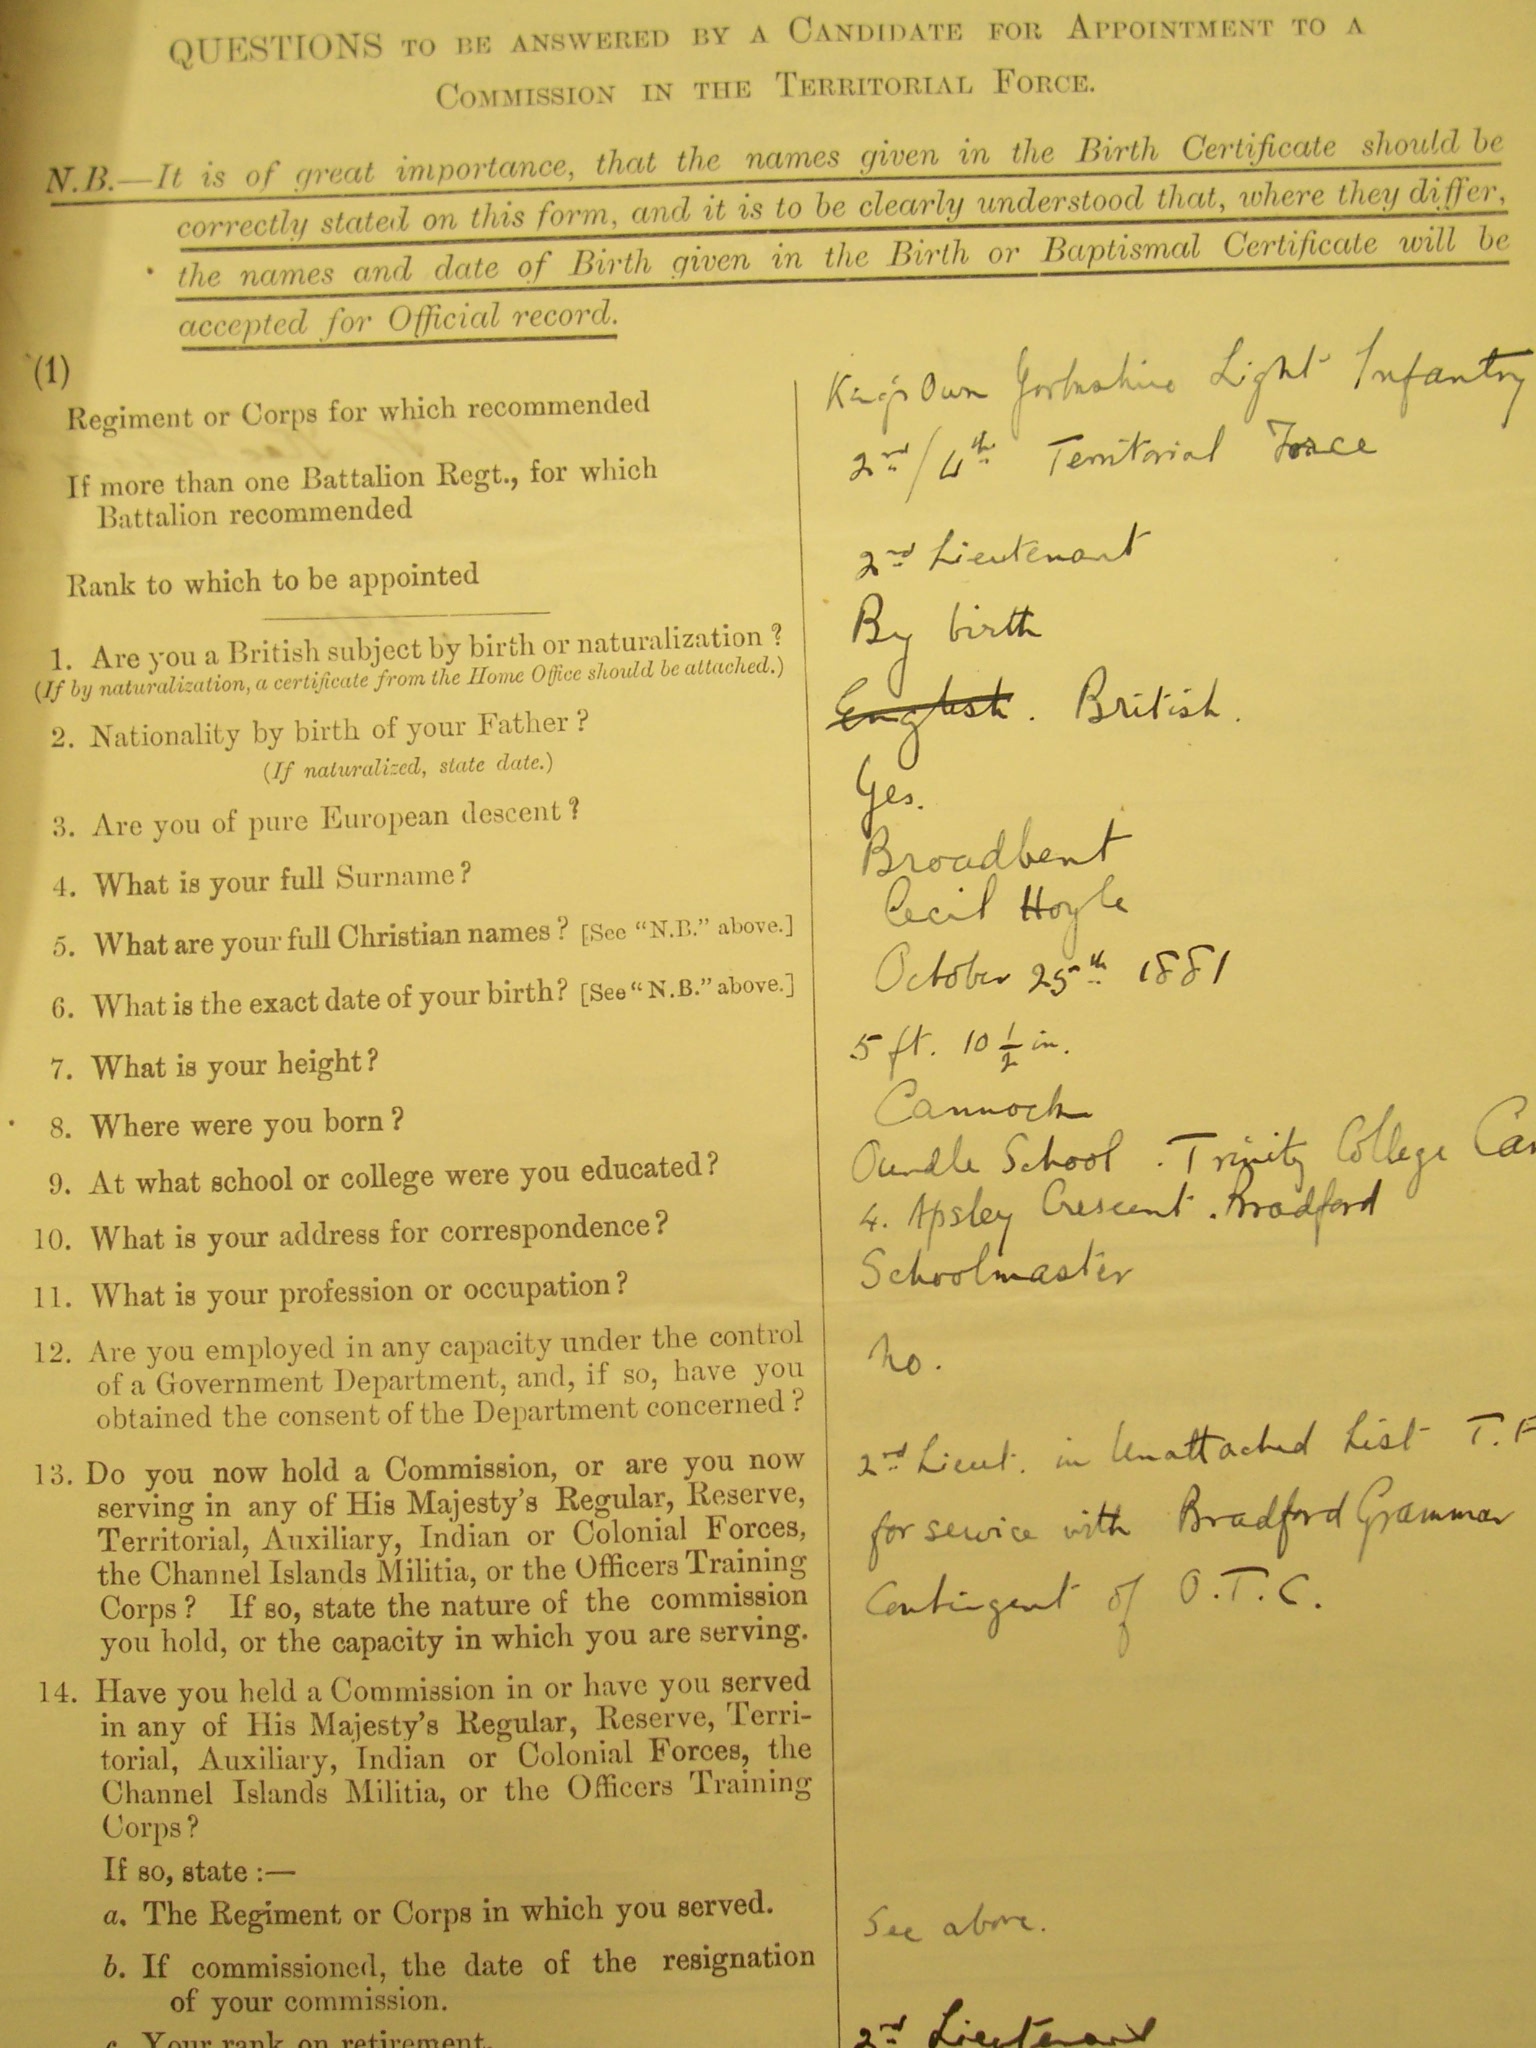 QUESTIONS TO BE ANSWERED BY A CANDIDATE FOR APPOINTMENT TO A
COMMISSION IN THE TERRITORIAL FORCE.
N.B.—It is of great importance, that the names given in the Birth Certificate should be
correctly stated on this form, and it is to be clearly understood that, where they differ,
the names and date of Birth given in the Birth or Baptismal Certificate will be
accepted for Official record.
(1)
Regiment or Corps for which recommended
King's Own Yorkshire Light Infantry
If more than one Battalion Regt., for which
Battalion recommended
2nd/4th Territorial Force
Rank to which to be appointed
2nd Lieutenant
1. Are you a British subject by birth or naturalization?
(If by naturalization, a certificate from the Home Office should be attached.)
By birth
2. Nationality by birth of your Father?
(If naturalized, state date.)
English. British.
3. Are you of pure European descent?
Yes.
4. What is your full Surname?
Broadbent
5. What are your full Christian names? [See "N.B." above.]
Cecil Hoyle
6. What is the exact date of your birth? [See "N.B." above.]
October 25th 1881
7. What is your height?
5 ft. 10 1/2 in.
8. Where were you born?
Cannock
9. At what school or college were you educated?
Oundle School. Trinity College Cam
10. What is your address for correspondence?
4. Apsley Crescent. Bradford
11. What is your profession or occupation?
Schoolmaster
12. Are you employed in any capacity under the control
of a Government Department, and, if so, have you
obtained the consent of the Department concerned?
No.
13. Do you now hold a Commission, or are you now
serving in any of His Majesty's Regular, Reserve,
Territorial, Auxiliary, Indian or Colonial Forces,
the Channel Islands Militia, or the Officers Training
Corps? If so, state the nature of the commission
you hold, or the capacity in which you are serving.
2nd Lieut. in Unattached List T.F
for service with Bradford Grammar
Contingent of O.T.C.
14. Have you held a Commission in or have you served
in any of His Majesty's Regular, Reserve, Terri-
torial, Auxiliary, Indian or Colonial Forces, the
Channel Islands Militia, or the Officers Training
Corps?
If so, state :—
a. The Regiment or Corps in which you served.
See above.
b. If commissioned, the date of the resignation
of your commission.
c. Your rank on retirement.
2nd Lieutenant